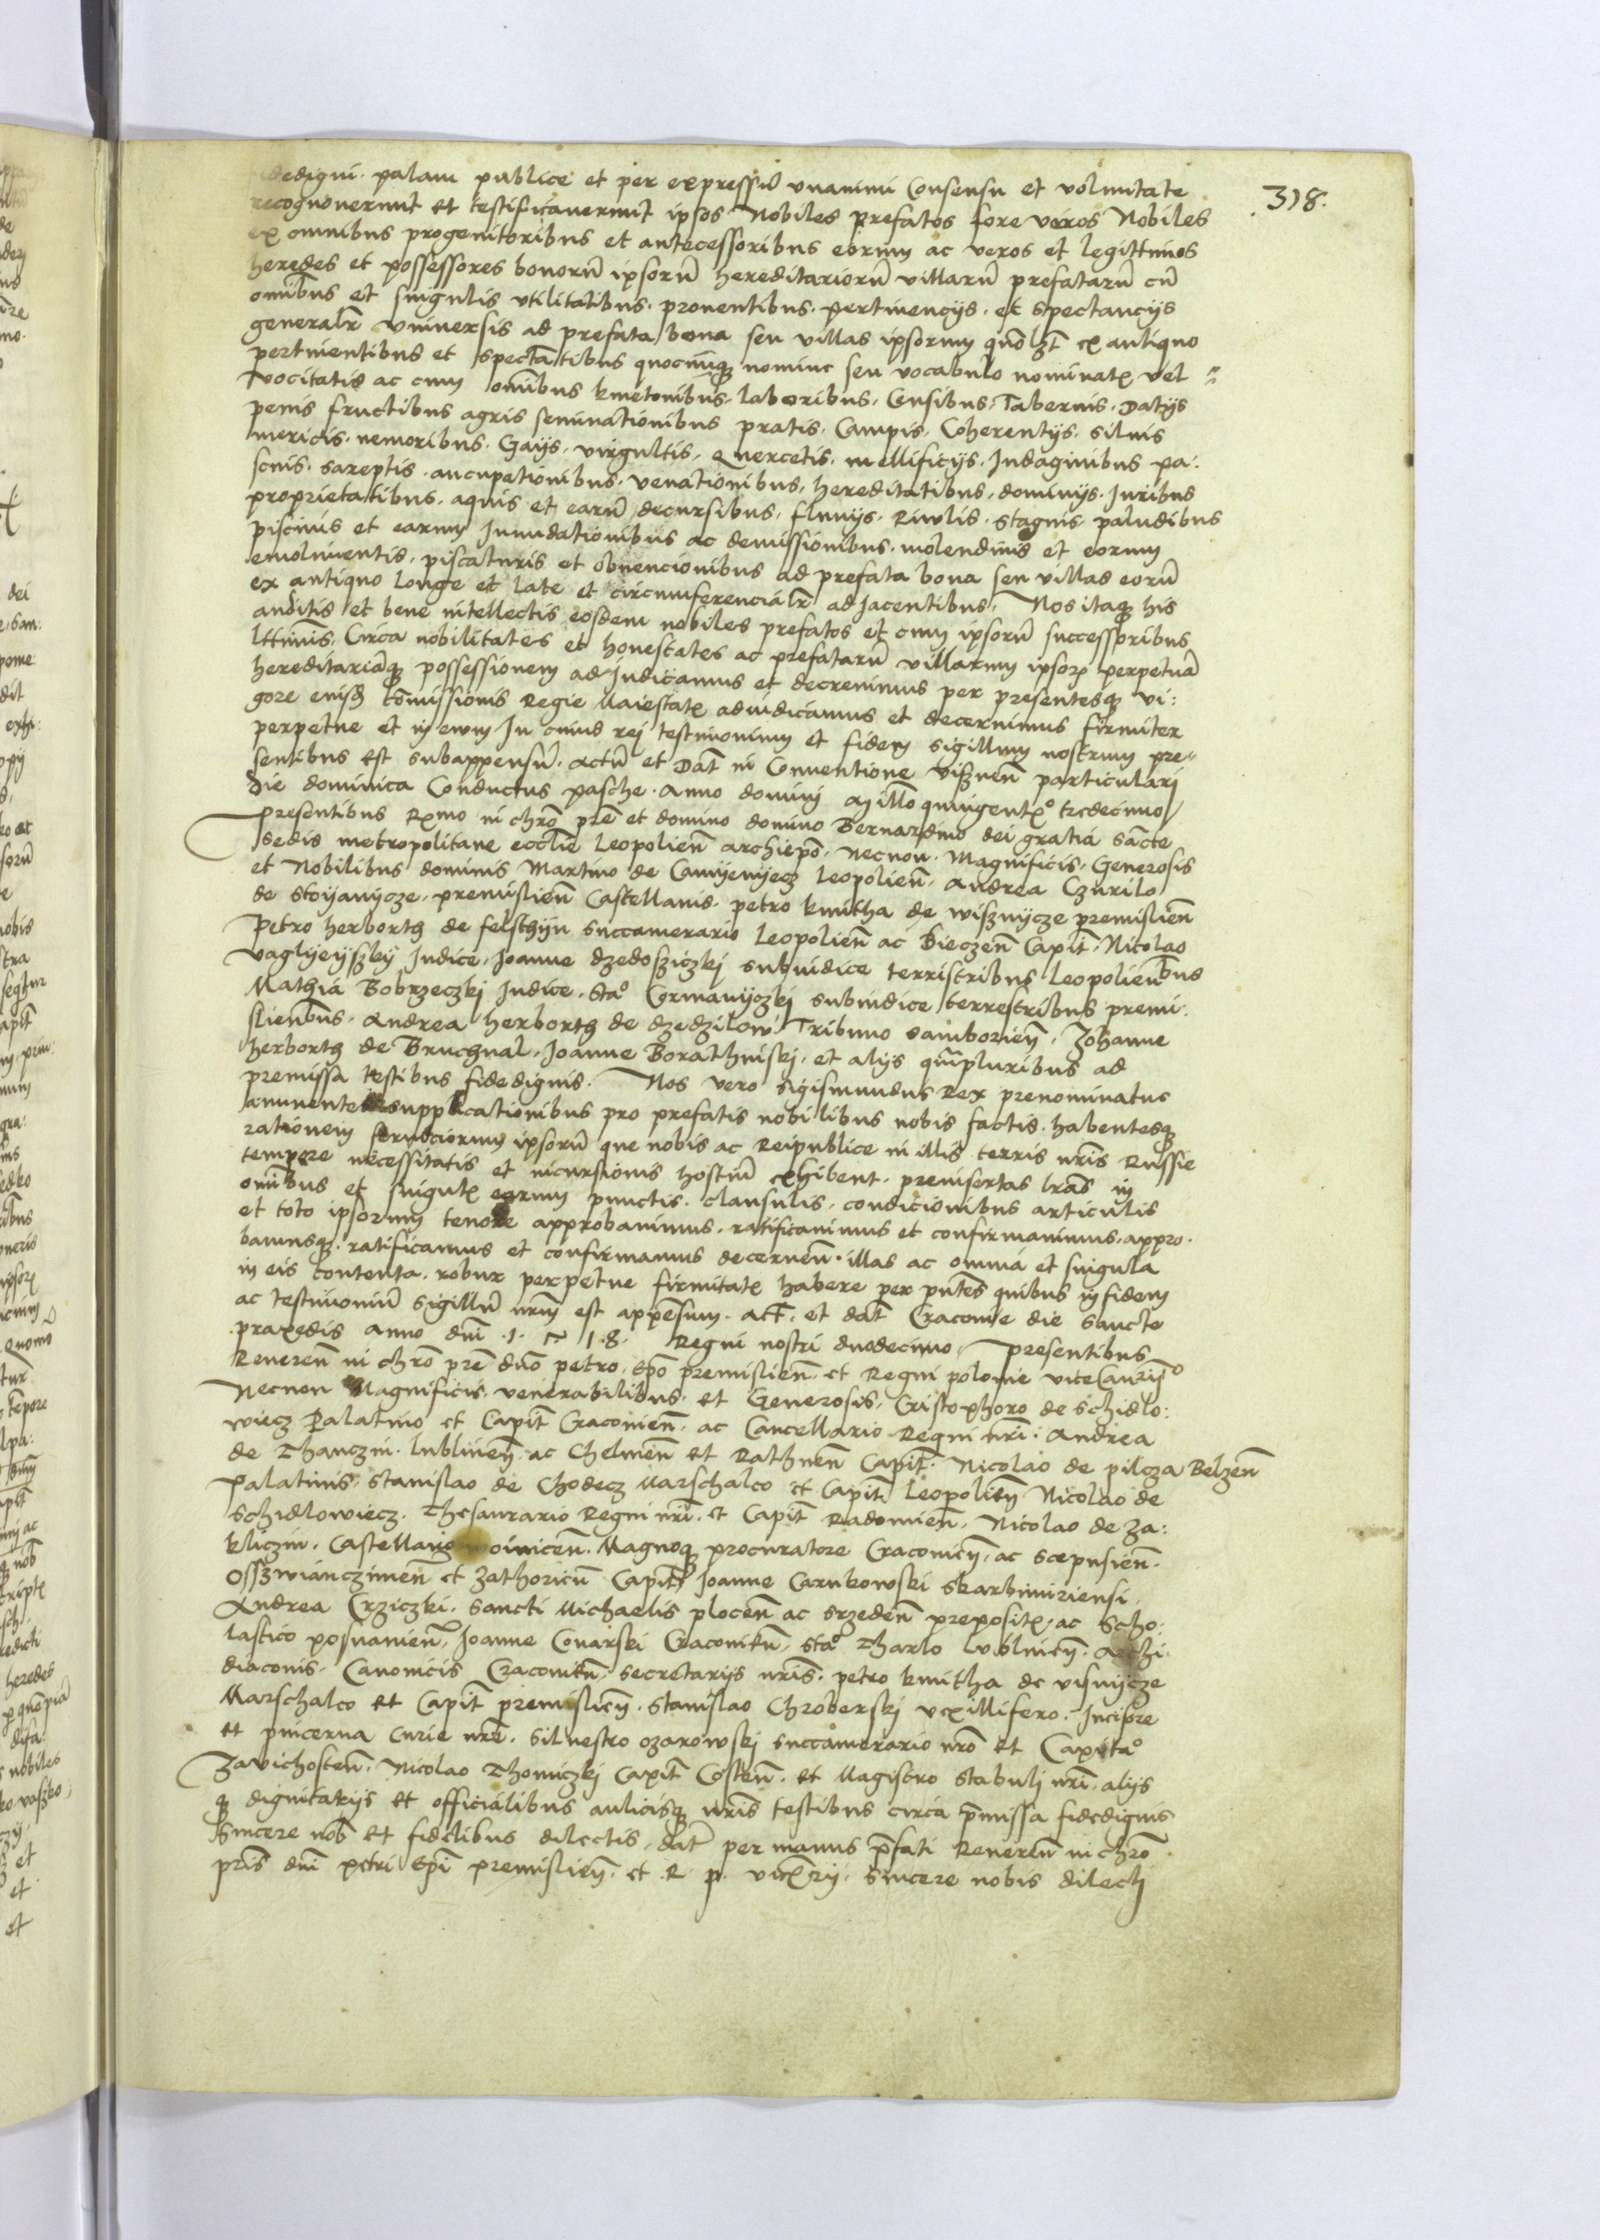 318.
dedigni. palam publice et per expressū vnanimi Consensu et volūntate
recognoverunt et testificaverunt ipsos Nobiles prefatos fore veros Nobiles
ex omnibus progenitoribus et antecessoribus eorum ac veros et legittimos
heredes et possessores bonorū ipsorū hereditariorū villarū prefatarū cū
omībus et singulis vtilitatibus. proventibus. pertinencijs. et spectancijs
generalr̄ vniversis ad prefata bona seu villas ipsorum quōlzt ex antiquo
pertinentibus et spectātibus quocūqȝ nomine seu vocabulo nominatis vel
vocitatis ac cum omībus kmetonibus. laboribus. Censibus. Tabernis. Datijs
penis fructibus agris seminationibus pratis. Campis. Coherentijs. silvis
mericis. nemoribus. Gays. virgultis. Quercetis. mellificijs. Indaginibus pa:
scuis. sareptis. aucupationibus. venationibus. hereditatibus. dominijs. Juribus
proprietatibus. aquis et earū decursibus. fluvijs. Riwlis. stagnis. paludibus
piscinis et earum Inundationibus ac demissionibus. molendinis et eorum
emolumentis. piscaturis et obvencionibus ad prefata bona seu villas eorū
ex antiquo longe et late et circumferencialr̄ adjacentibus. Nos itaqȝ his
auditis et bene intellectis eosdem nobiles prefatos et cum ipsorū successoribus
lttimis. Circa nobilitates et honestates ac prefatarū villarum ipsorꝝ perpetuā
hereditariāqȝ possessionem adiudicavimus et decrevimus per presentesqȝ vi:
gore eiusd comissionis Regie Maiestatis adiudicamus et decernimus firmiter
perpetue et in evum In cuius rej testimonium et fidem sigillum nostrum pre-
sentibus est subappensū. Actū et Dat̄ in Conventione viznen̄ particularj
die dominica Conductus pasche. Anno dominj millo quingentō tredecimo
presentibus Rxmo in chrō prē et domino domino Bernardino dei gratia sācte
sedis metropolitane ecclie Leopolien̄ archiepō. Necnon. Magnificis. Generosis
et Nobilibus dominis Martino de Camyenyecz Leopolien̄. Andrea Czurilo
de Stoyanycze. premislien̄ Castellanis. petro kmitha de wisznycze premislien̄
Petro herborth de felschtyn succamerario Leopolien̄ ac Bieczen̄ Capit̄. Nicolao
vaglyeyszky Judice. Joanne dzedosziczkj subiudice terrīstribus Leopolienbus
Mathia Bobrzeczkj Judice. Stā Cormanyczkj subiudice terrestribus premi:
slienbus. Andrea herborth de dzedzilow Tribuno samborien̄. Johanne
herborth de Bruchnal. Joanne Borathinskj. et alijs quāpluribus ad
premissa testibus fidedignis. Nos vero Sigismundus Rex prenominatus
annuentes supplicationibus pro prefatis nobilibus nobis factis. habentesqȝ
rationem serviciorum ipsorū que nobis ac Reipublice in illis terris nr̄is Russie
tempore necessitatis et incursionis hostiū exhibent. preinsertas lrās in
omībus et singulis earum punctis. clausulis. condicionibus articulis
et toto ipsorum tenore approbavimus. ratificavimus et confirmavimus. appro.
bamusqȝ. ratificamus et confirmamus decernen̄. illas ac omnia et singula
in eis contenta. robur perpetue firmitatis habere per pn̄tes quibus in fidem
ac testimoniū sigillū nrm est appēsum. Act̄. et dat̄ Cracovie die Sancte
praxedis Anno dnī 1518. Regni nostri duodecimo. presentibus
Reveren̄ in chrō prē dnō petro. Epō premislien̄ et Regni polonie vicecancrīo
Necnon Magnificis. venerabilibus. et Generosis. Cristophoro de Schidlo:
wiecz Palatino et Capit̄ Cracovien̄. ac Cancellario Regni nr̄i. Andrea
de Thanczin. lublinen̄ ac Chelmen̄ et Rathnen̄ Capit̄. Nicolao de pilcza Belzen̄
Palatinis. Stanislao de Chodecz Marschalco et Capit̄ Leopolien̄ Nicolao de
Schidlowiecz. Thesaurario Regni nr̄i. et Capit̄ Radomien̄. Nicolao de Za:
kliczin. Castellano woinicen̄. Magnoqȝ procuratore Cracovien̄, ac scepusien̄.
Osszwianczimen̄ et Zathorien̄ Capit̄ Joanne Carnkowski Skarbimiriensi.
Andrea Crziczki. Sancti Michaelis plocen̄ ac Srzeden̄ prepositis. ac Scho:
lastico posnanien̄. Joanne Conarski Cracovien̄. Stā Tharlo lublinen̄. Archi.
diaconis. Canonicis Cracovien̄. Secretarijs nr̄is. petro kmitha de visnycze
Marschalco et Capit̄ premislien̄. Stanislao Chroberskj vexillifero. Incisore
et pincerna Curie nr̄e. Silvestro ozarowskj succamerario nr̄o et Capitā
Zavichosten̄. Nicolao Thomiczkj Capit̄ Costen̄. et Magistro stabulj nr̄i. alijs
qȝ dignitarijs et officialibus aulicisqȝ nr̄is testibus circa pmissa fidedignis
Sincere nob et fidelibus dilectis. dat̄ per manus pfati Reveren̄ in chrō
pris dnī petri Epī premislien̄. et R p. vicecrij. Sincere nobis dilecti